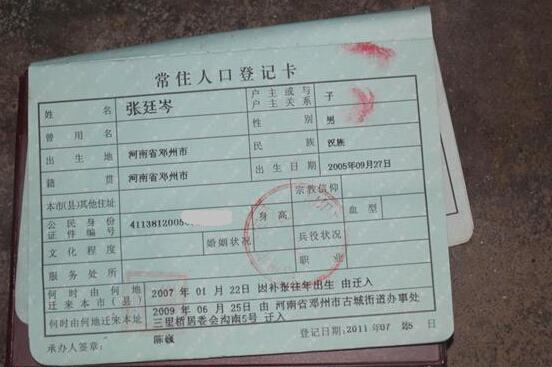 常住人口登记卡
姓名 张廷岑 户主或与户主关系 子
曾用名 性别 男
出生地 河南省邓州市 民族 汉族
籍贯 河南省邓州市 出生日期 2005年09月27日
本市(县)其他住址 宗教信仰
公民身份证件编号 4113812005 身高 血型
文化程度 婚姻状况 兵役状况
服务处所 职业
何时由何地迁来本市(县) 2007 年 01 月 22日 因补报往年出生 由迁入
何时由何地迁来本址 2009 年 06 月 25日 由 河南省邓州市古城街道办事处
三里桥居委会沟南5号 迁入
承办人签章: 陈巍 登记日期:2011年07 25日